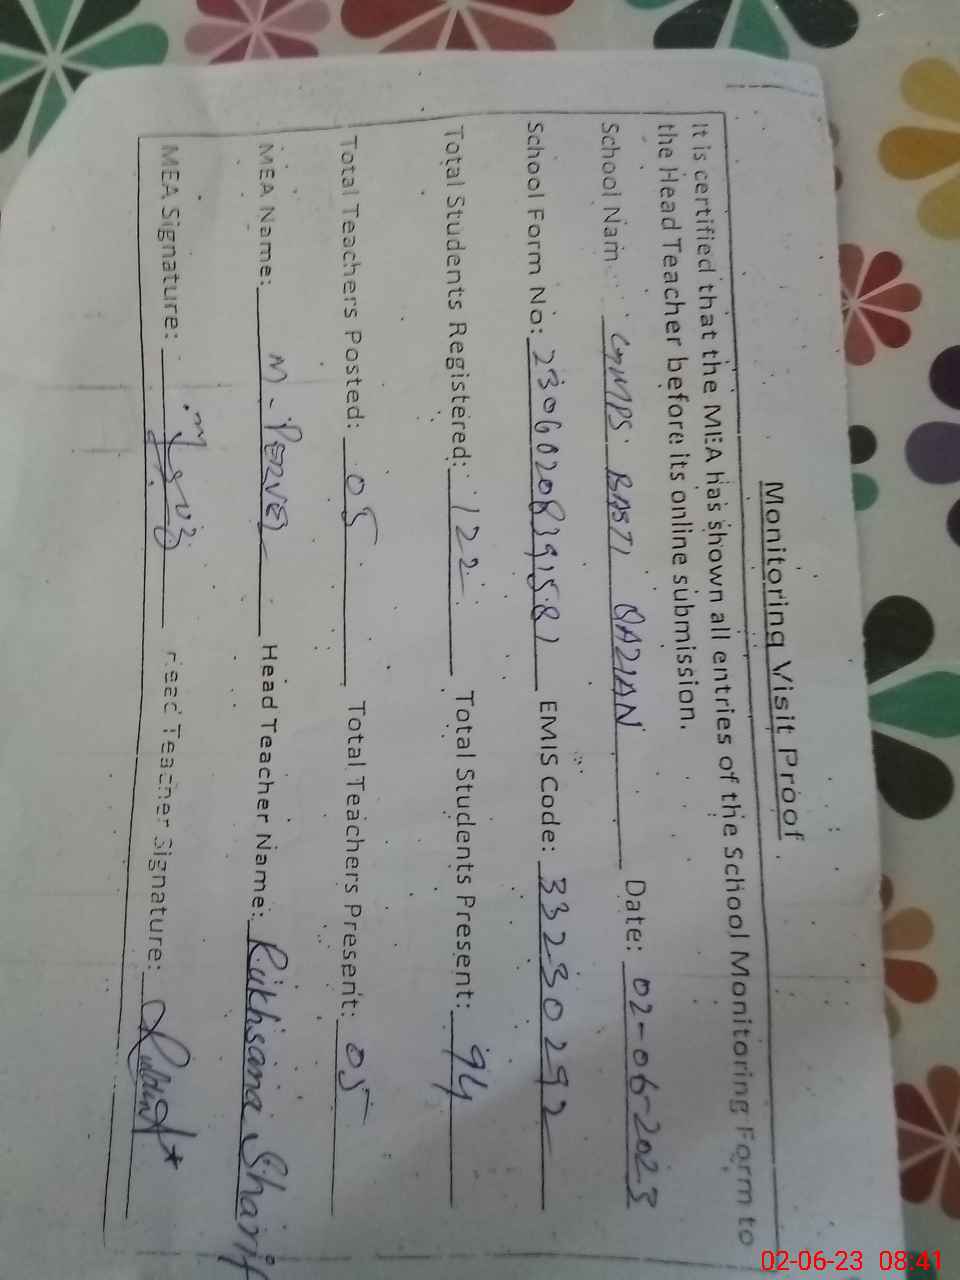 Monitoring Visit Proof
It is certified that the MEA has shown all entries of the School Monitoring Form to
the Head Teacher before its online submission.
School Nam GMPS BASTI QAZIAN Date: 02-06-2023
School Form No: 23060208391581 EMIS Code: 33230292
Total Students Registered: 122 Total Students Present: 94
Total Teachers Posted: 05 Total Teachers Present: 05
MEA Name: M. Pervez Head Teacher Name: Rukhsana Sharif
MEA Signature: Head Teacher Signature:
02-06-23 08:41